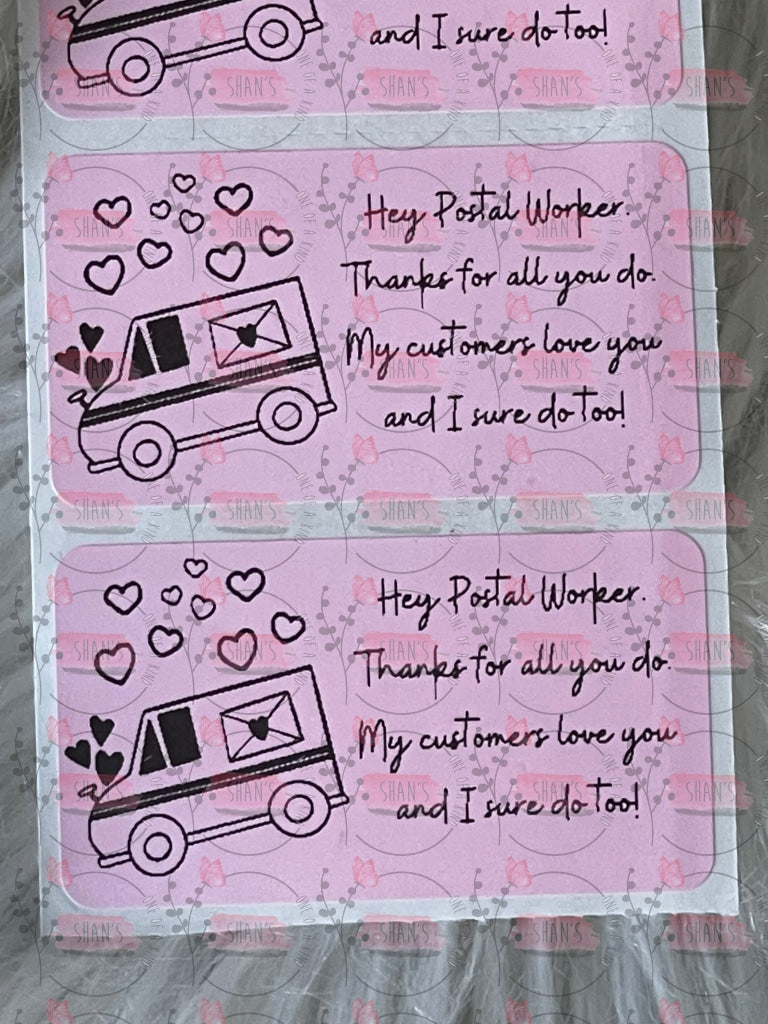 and I sure do too!
Hey Postal Worker.
Thanks for all you do.
My customers love you
and I sure do too!
Hey Postal Worker.
Thanks for all you do.
My customers love you
and I sure do too!
SHAN'S
ONE OF A KIND